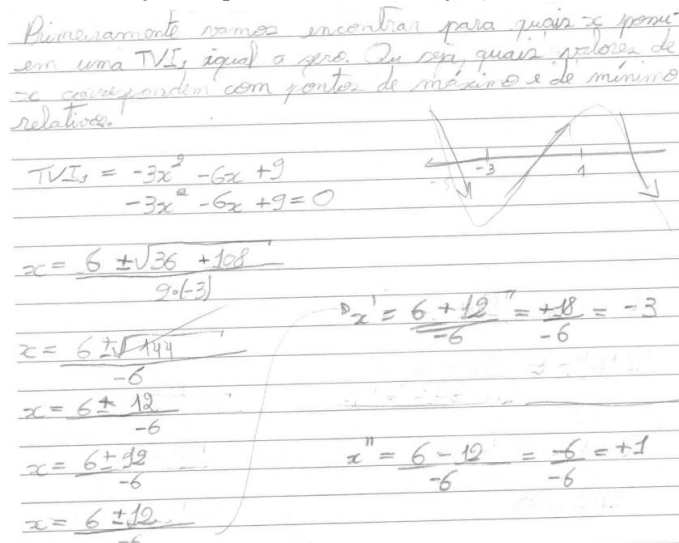 Primeiramente vamos encontrar para quais x possu-
em uma TVI, igual a zero. Ou seja, quais valores de
x correspondem com pontos de máximo e de mínimo
relativos.
-3 1
TVI, = -3x² - 6x + 9
-3x² - 6x + 9 = 0
x = 6 ± √36 + 108 / 2·(-3)
x' = 6 + 12 / -6 = +18 / -6 = -3
x = 6 ± √144 / -6
x = 6 ± 12 / -6
x = 6 ± 12 / -6
x'' = 6 - 12 / -6 = -6 / -6 = +1
x = 6 ± 12 / -6